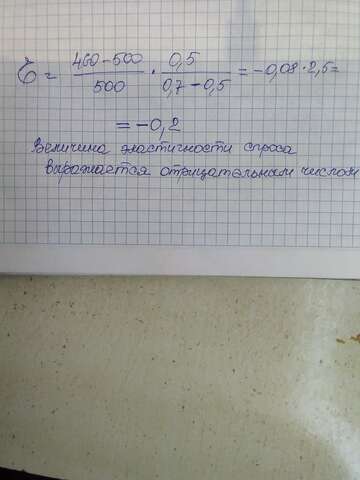 Ɛ = 460-500/500 · 0,5/0,7-0,5 = -0,08·2,5=
= -0,2
Величина эластичности спроса
выражается отрицательным числом